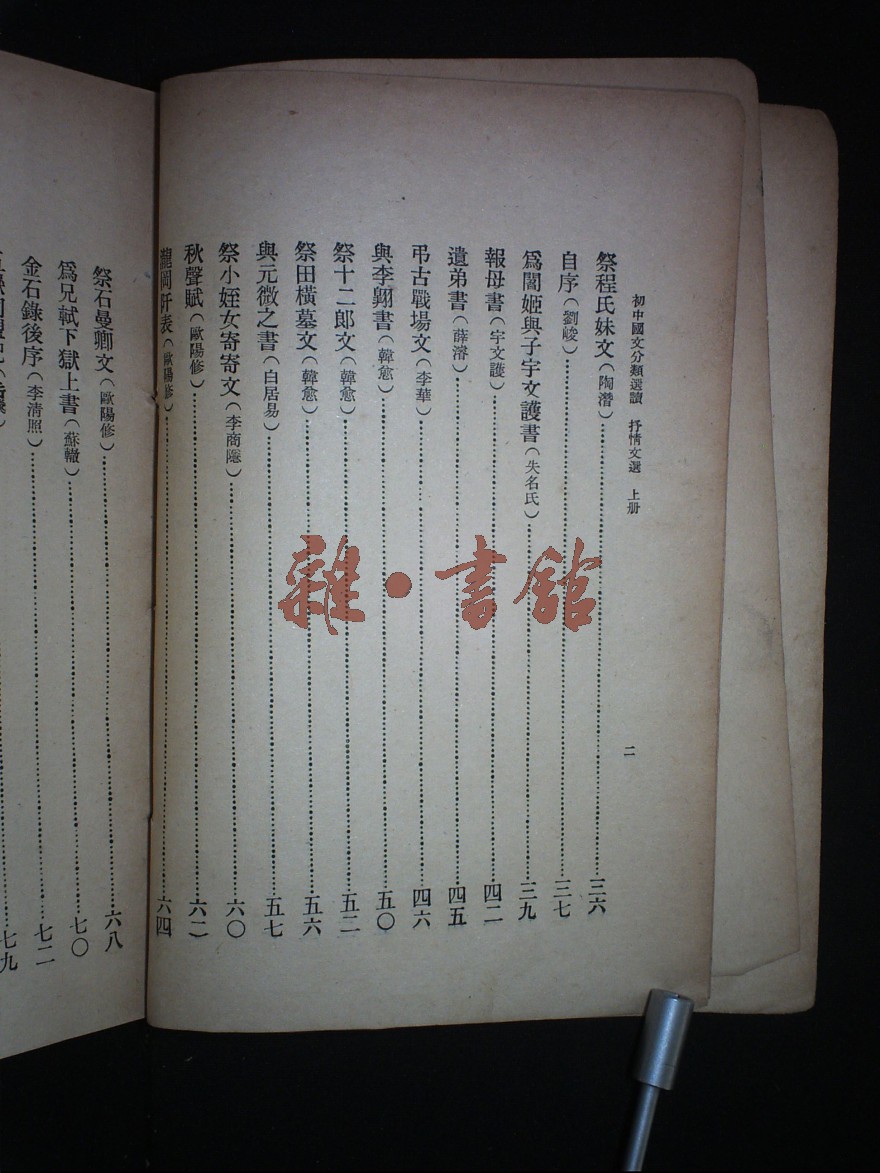 初中國文分類選讀 抒情文選 上册
二
祭程氏妹文(陶潛)……三六
自序(劉峻)……三七
爲閻姬與子宇文護書(失名氏)……三九
報母書(宇文護)……四二
遺弟書(薛濬)……四五
弔古戰場文(李華)……四六
與李翺書(韓愈)……五〇
祭十二郎文(韓愈)……五二
祭田橫墓文(韓愈)……五六
與元微之書(白居易)……五七
祭小姪女寄寄文(李商隱)……六〇
秋聲賦(歐陽修)……六二
瀧岡阡表(歐陽修)……六四
祭石曼卿文(歐陽修)……六八
爲兄軾下獄上書(蘇轍)……七〇
金石錄後序(李清照)……七二
七九
雜·書館